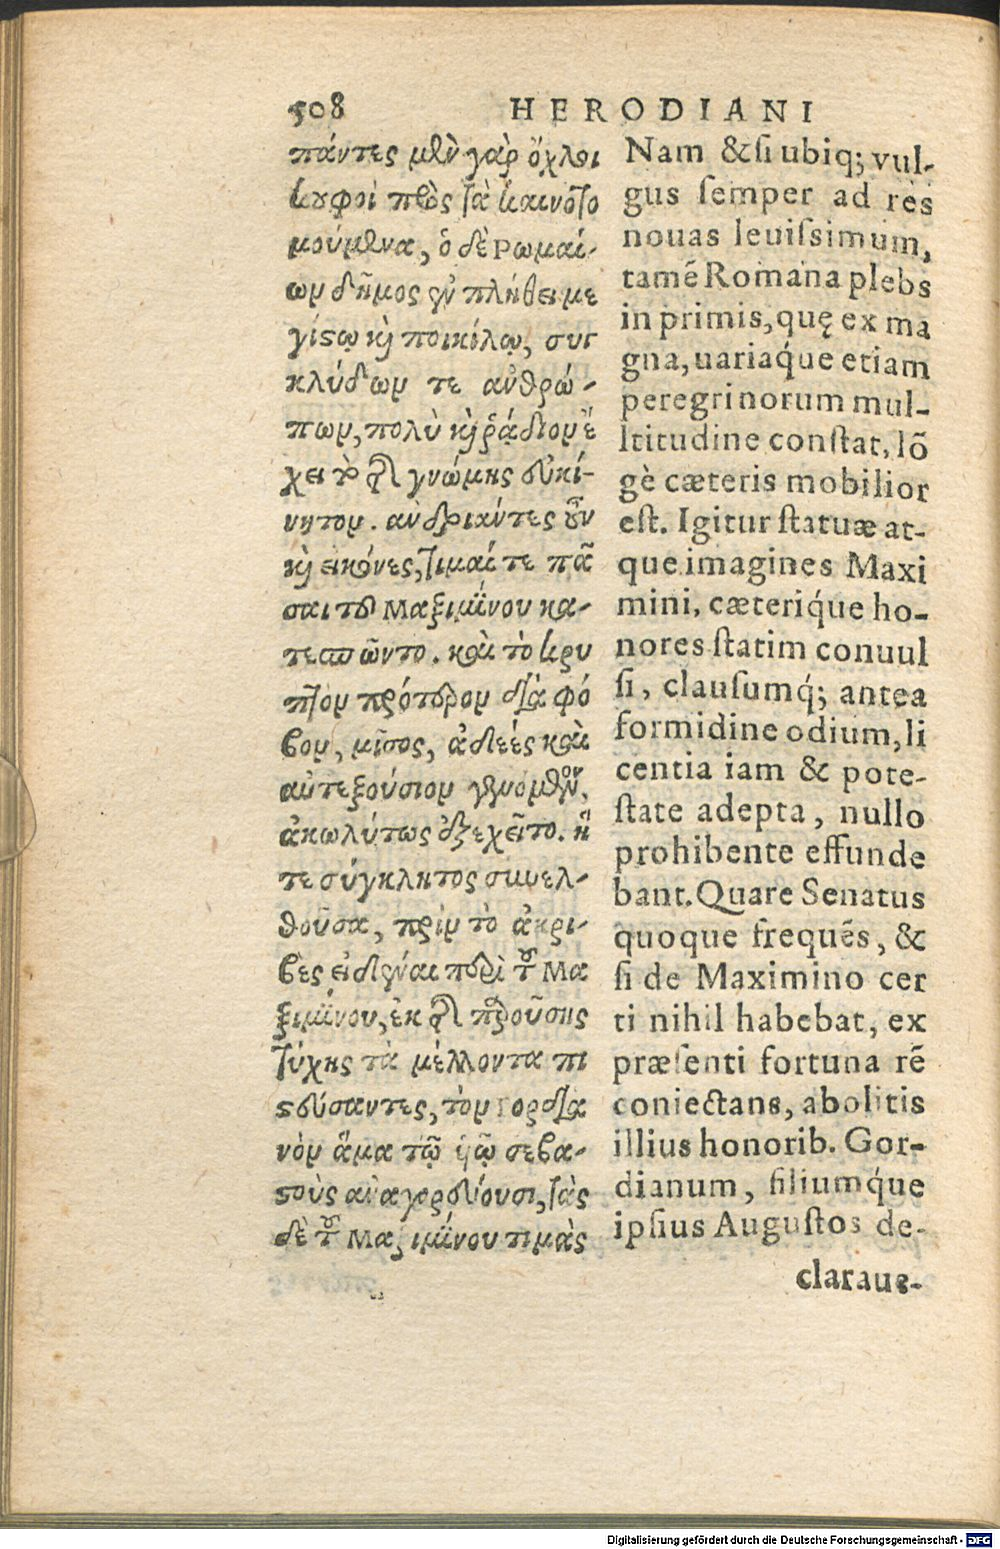 508 HERODIANI
πάντες μὲν γὰρ ὄχλοι
κοῦφοι πρὸς τὰ καινοτο
μούμενα, ὁ δὲ Ρωμαί-
ων δῆμος ἐν πλήθει με
γίστῳ καὶ ποικίλῳ, συγ
κλύδων τε ἀνθρώ-
πων, πολὺ καὶ ῥᾴδιον ἔ
χει τὸ τῆς γνώμης εὐκί-
νητον. ἀνδριάντες οὖν
καὶ εἰκόνες, τιμαί τε πᾶ
σαι τοῦ Μαξιμίνου κα-
τεσπῶντο. καὶ τὸ κρυ
πτὸν πρότερον διὰ φό
βον, μῖσος, ἀδεὲς καὶ
αὐτεξούσιον γενόμενον,
ἀκωλύτως ἐξεχεῖτο. ἥ
τε σύγκλητος συνελ-
θοῦσα, πρὶν τὸ ἀκρι-
βὲς εἰδέναι περὶ τοῦ Μα
ξιμίνου, ἐκ τῆς παρούσης
τύχης τὰ μέλλοντα πι
στεύσαντες, τὸν Γορδια
νὸν ἅμα τῷ υἱῷ σεβα-
στοὺς ἀναγορεύουσι, τὰς
δὲ τοῦ Μαξιμίνου τιμὰς
Nam & si ubiq; vul-
gus semper ad res
nouas leuissimum,
tamē Romana plebs
in primis, quę ex ma
gna, uariaq́ue etiam
peregrinorum mul-
ltitudine constat, lō
gè cæteris mobilior
est. Igitur statuæ at-
que imagines Maxi
mini, cæteriq́ue ho-
nores statim conuul
si, clausumq́; antea
formidine odium, li
centia iam & pote-
state adepta, nullo
prohibente effunde
bant. Quare Senatus
quoque frequēs, &
si de Maximino cer
ti nihil habebat, ex
præsenti fortuna rē
coniectans, abolitis
illius honorib. Gor-
dianum, filiumq́ue
ipsius Augustos de-
claraue-
Digitalisierung gefördert durch die Deutsche Forschungsgemeinschaft - DFG